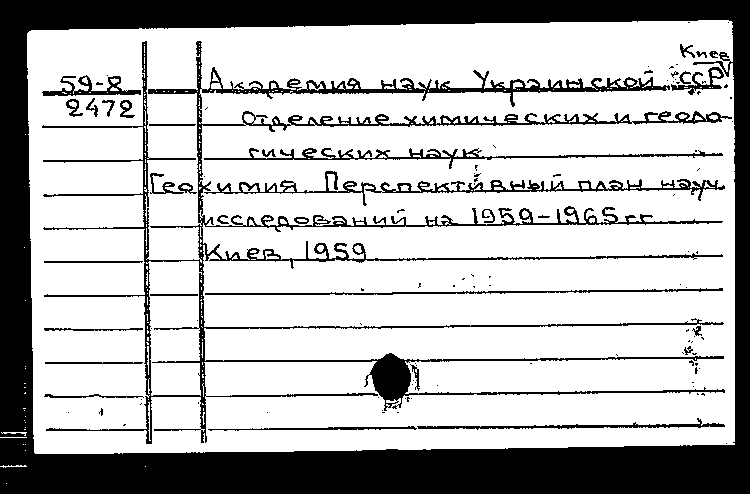 Киев
59-8 Академия наук Украинской ССР.
2472 Отделение химических и геоло-
гических наук.
Геохимия. Перспективный план науч.
исследований на 1959-1965 гг.
Киев, 1959